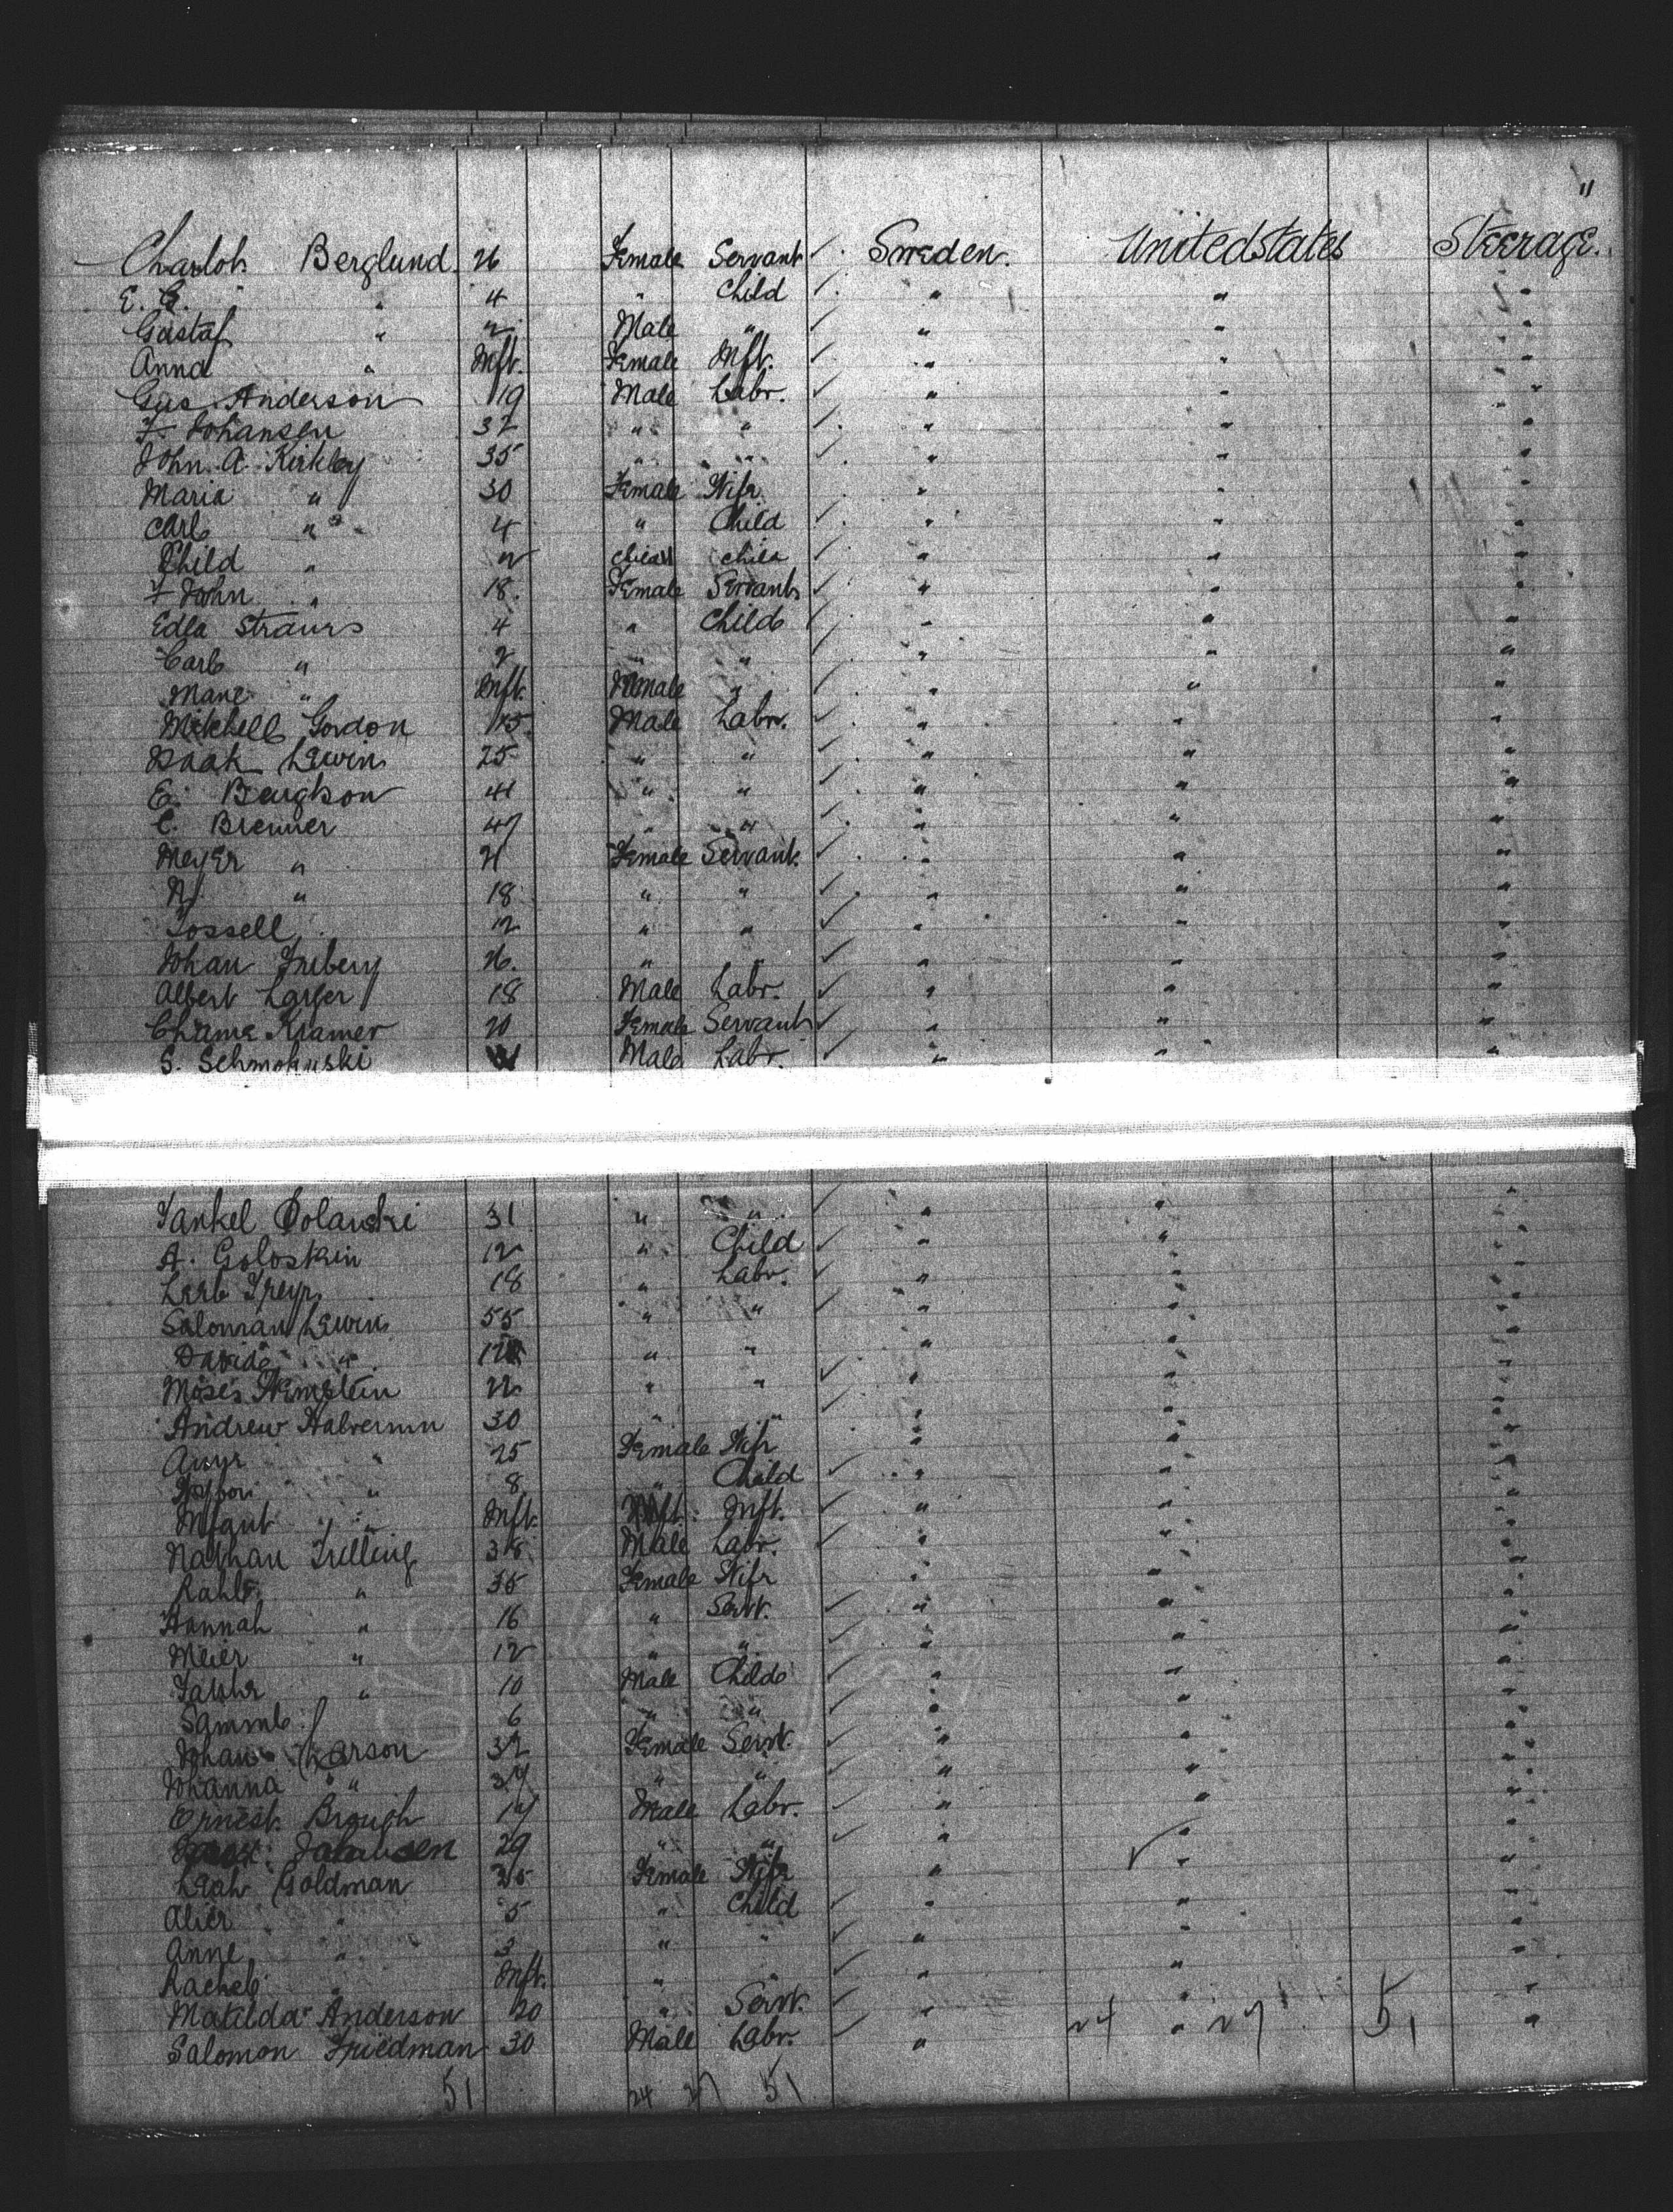 "
Charlott Berglund 26 Female Servant ✓ Sweden. United States Steerage.
E. C. " 4 " Child ✓ " " "
Gustaf " 2 Male " ✓ " " "
Anna " Inft. Female Inft. ✓ " " "
Gus Anderson 19 Male Labr. ✓ " " "
F. Johansen 32 " " ✓ " " "
John A. Kirkley 35 " " ✓ " " "
Maria " 30 Female Wife " " "
Carl " 4 " Child ✓ " " "
Child " 2 Child Child ✓ " " "
F John " 18 Female Servant ✓ " " "
Edla Strauss 4 " Child ✓ " " "
Carl " 2 " " ✓ " " "
Mane " Inft. Female " ✓ " " "
Mitchell Gordon 15 Male Labr. ✓ " " "
Isaak Lewin 25 " " ✓ " " "
E. 41 " " ✓ " " "
C. Brenner 47 " " ✓ " " "
Meyer " 21 Female Servant ✓ " " "
N. " 18 " " ✓ " " "
Tossell 12 " " ✓ " " "
Johan 26. " " ✓ " " "
Albert 18 Male Labr. ✓ " " "
Kramer 20 Female Servant ✓ " " "
S. Male Labr. ✓ " " "
Yankel Polanski 31 " " ✓ " " "
A. Goloskin 12 " Child ✓ " " "
18 " Labr. ✓ " " "
Saloman Lewin 55 " " ✓ " " "
David " " " " " "
Moses 22 " " ✓ " " "
Andrew Halvernin 30 " " ✓ " " "
" 25 Female Wife " " "
" 8 " Child ✓ " " "
Infant " Inft. Inft. Inft. ✓ " " "
Nathan Trilling 38 Male Labr. ✓ " " "
" 35 Female Wife " " "
Hannah " 16 " Servt. ✓ " " "
Meier " 12 " " ✓ " " "
" 10 Male Child ✓ " " "
6 " " ✓ " " "
Johan Larson 32 Female Servt. ✓ " " "
Johanna " " " " " " "
Ernest Brough 17 Male Labr. ✓ " " "
29 " " ✓ " ✓ " "
Leah Goldman 35 Female Wife " " "
" 5 " Child ✓ " " "
Anne " 3 " " ✓ " " "
Rachel " Inft. " " ✓ " " "
Matilda Anderson 20 " Servt. ✓ " " "
Salomon Friedman 30 Male Labr. ✓ " 24 " 27 51 "
51 24 27 51